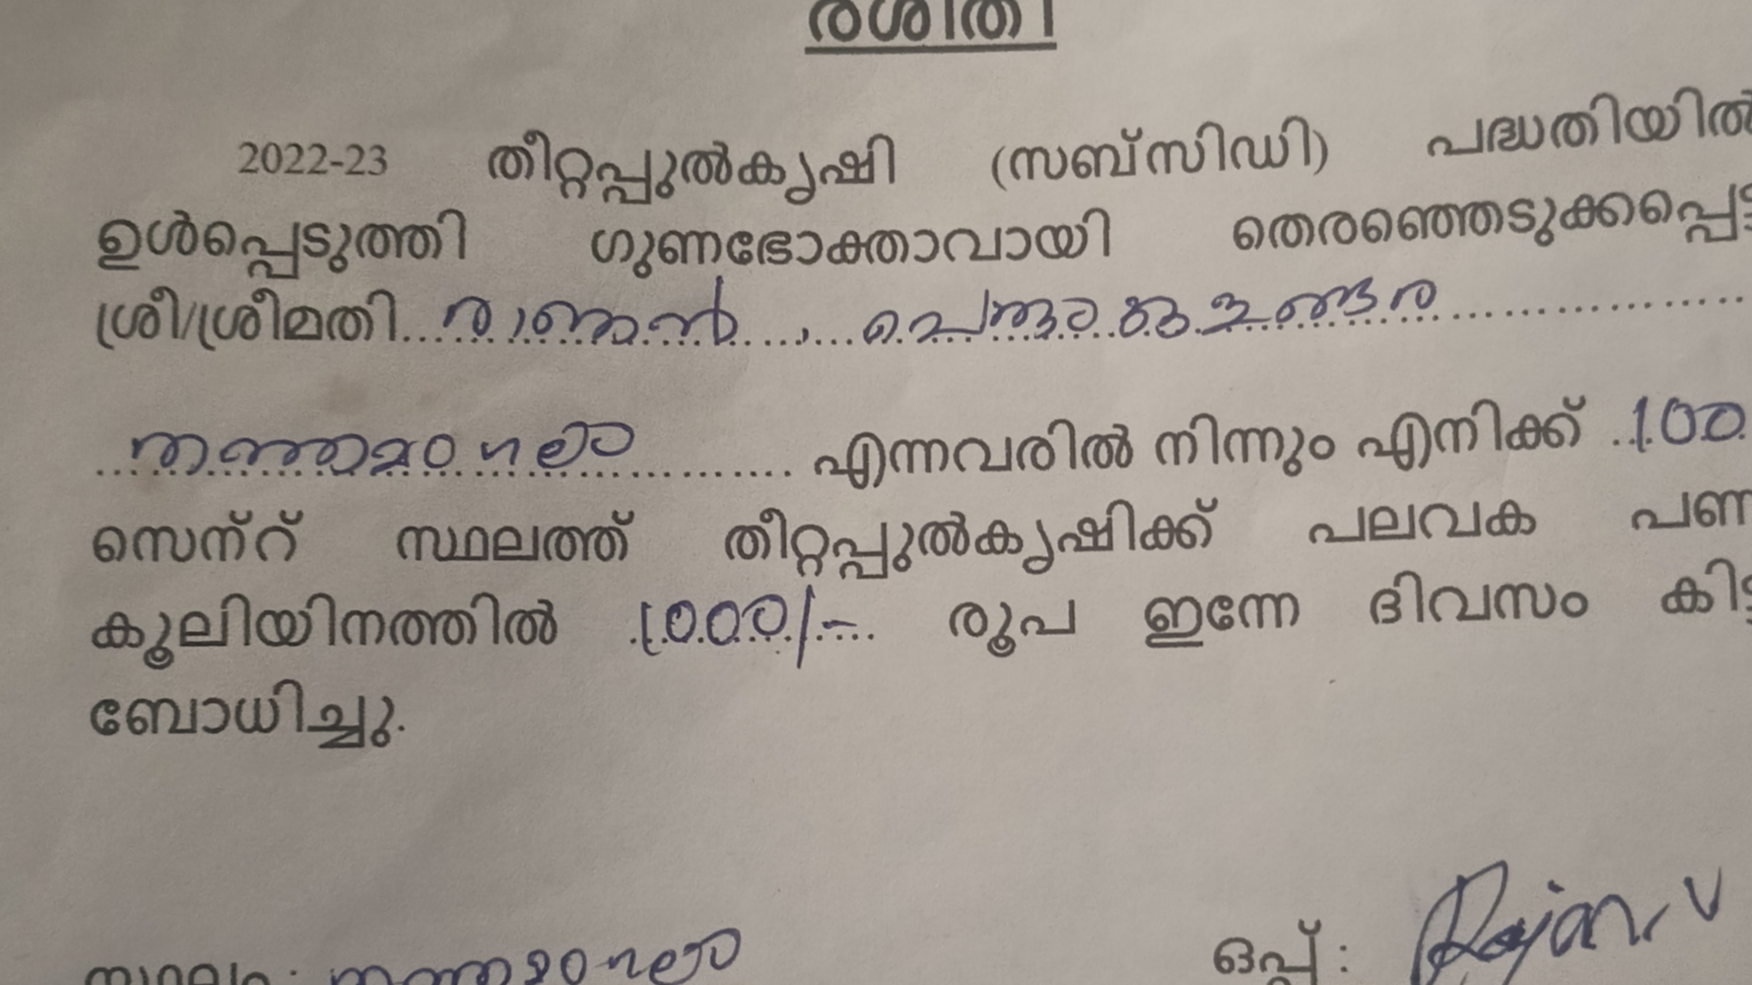 രശീതി
2022-23 തീറ്റപ്പുൽകൃഷി (സബ്സിഡി) പദ്ധതിയിൽ
ഉൾപ്പെടുത്തി ഗുണഭോക്താവായി തെരഞ്ഞെടുക്കപ്പെട്ട
ശ്രീ/ശ്രീമതി രാജൻ
തത്തമംഗലം എന്നവരിൽ നിന്നും എനിക്ക് 100
സെന്റ് സ്ഥലത്ത് തീറ്റപ്പുൽകൃഷിക്ക് പലവക പണ
കൂലിയിനത്തിൽ 1000/- രൂപ ഇന്നേ ദിവസം കിട്ട
ബോധിച്ചു.
സ്ഥലം : തത്തമംഗലം ഒപ്പ് : Rajan. V